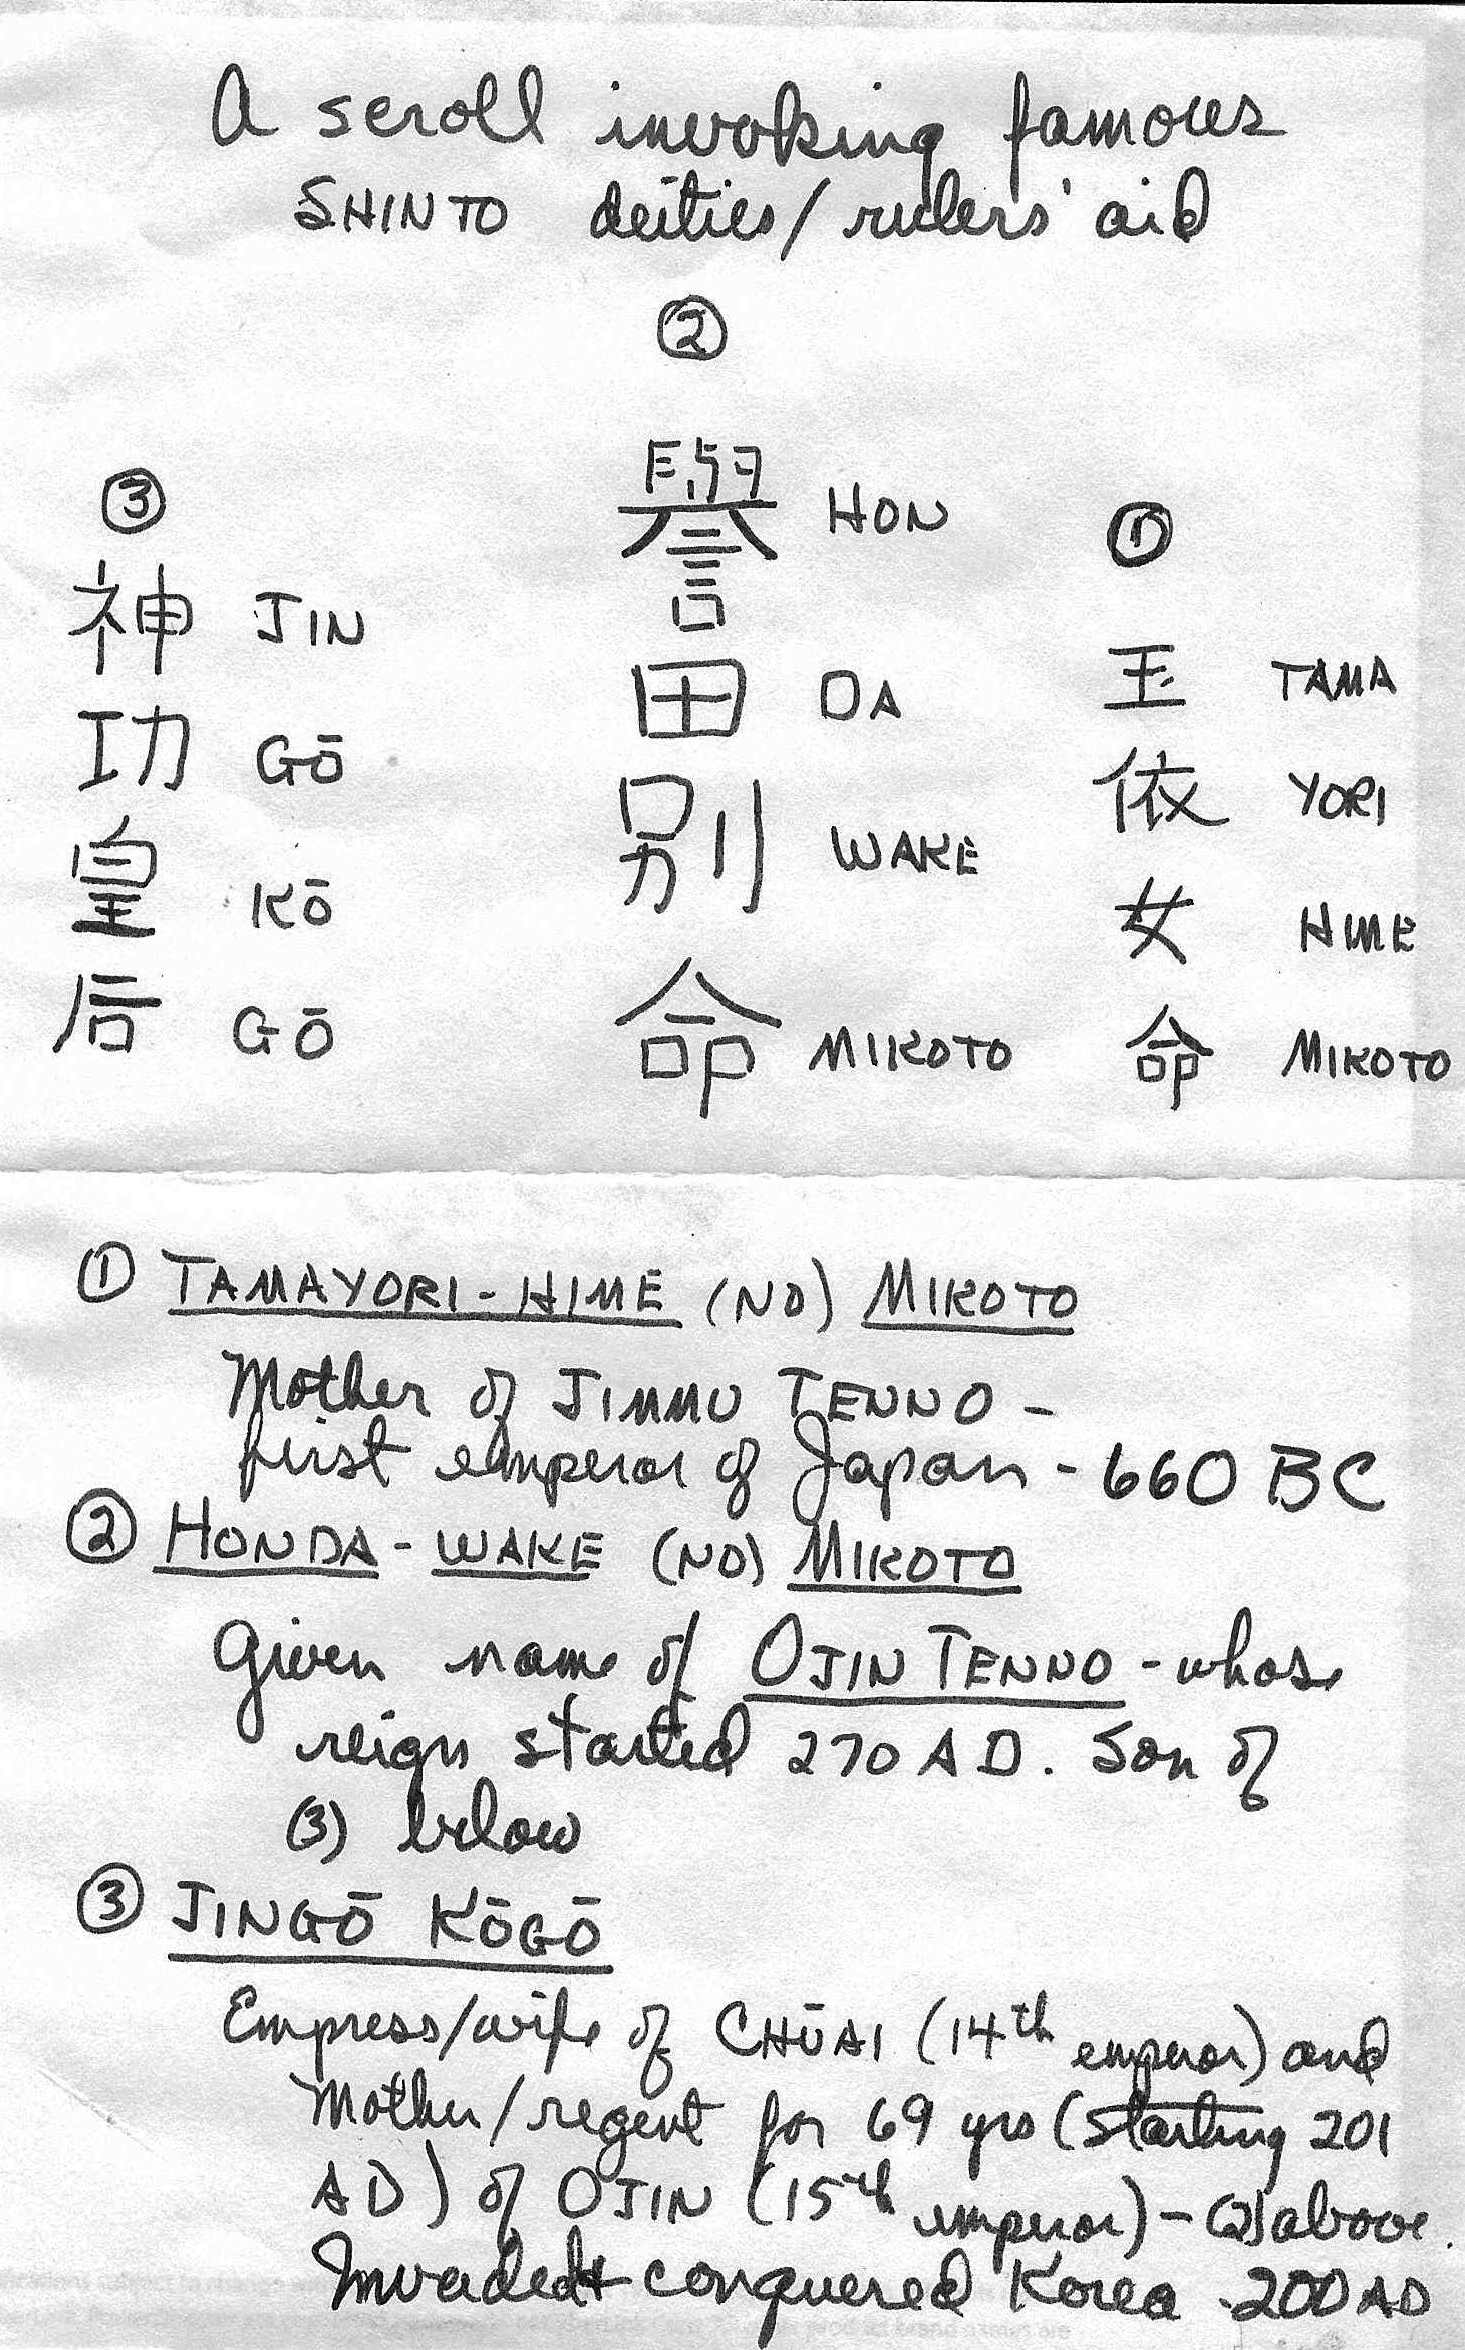 A scroll invoking famous
SHINTO deities/rulers' aid
②
③
譽 HON
①
神 JIN
田 DA
玉 TAMA
功 GŌ
別 WAKE
依 YORI
皇 KŌ
女 HIME
后 GŌ
命 MIKOTO
命 MIKOTO
① TAMAYORI-HIME (NO) MIKOTO
Mother of JIMMU TENNO -
first emperor of Japan - 660 BC
② HONDA-WAKE (NO) MIKOTO
Given name of OJIN TENNO - whose
reign started 270 AD. Son of
(3) below
③ JINGŌ KŌGŌ
Empress/wife of CHŪAI (14th emperor) and
Mother/regent for 69 yrs (starting 201
AD) of OJIN (15th emperor) - (2) above.
Invaded + conquered Korea 200 AD